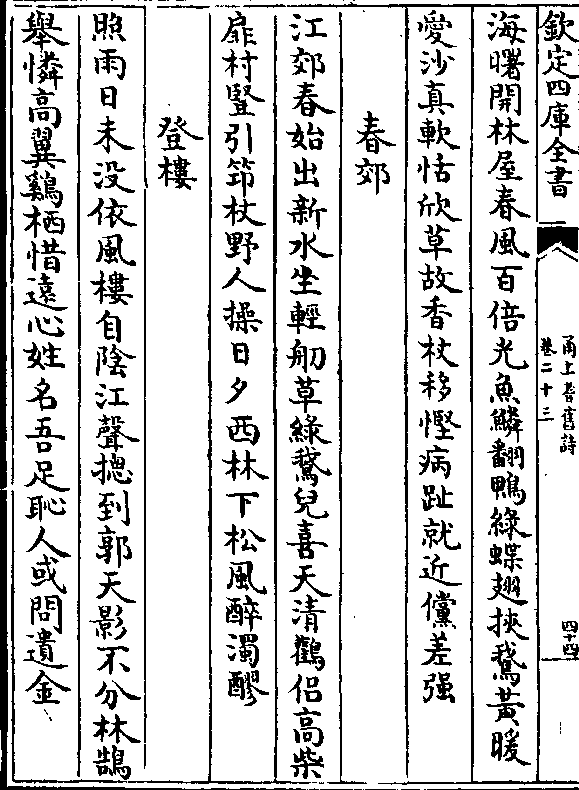 欽定四庫全書
甬上耆舊詩
卷二十三
四十四
海曙開林屋春風百倍光魚鱗翻鴨綠蝶翅挾鵞黄暖
愛沙真軟恬欣草故香杖移慳病趾就近儻差强
春郊
江郊春始出新水坐輕舠草綠鵞兒喜天清鸛侣高柴
扉村豎引笻杖野人操日夕西林下松風醉濁醪
登樓
照雨日未没依風樓自陰江聲摠到郭天影不分林鵠
舉憐高翼鷄栖惜遠心姓名吾足恥人或問遺金